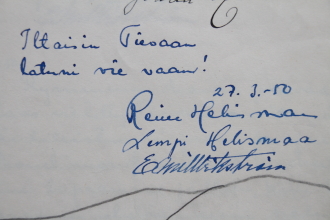 Iltaisin Tiesaan
latuni vie vaan!
27. 3. -50
Reino Helismaa
Lempi Helismaa